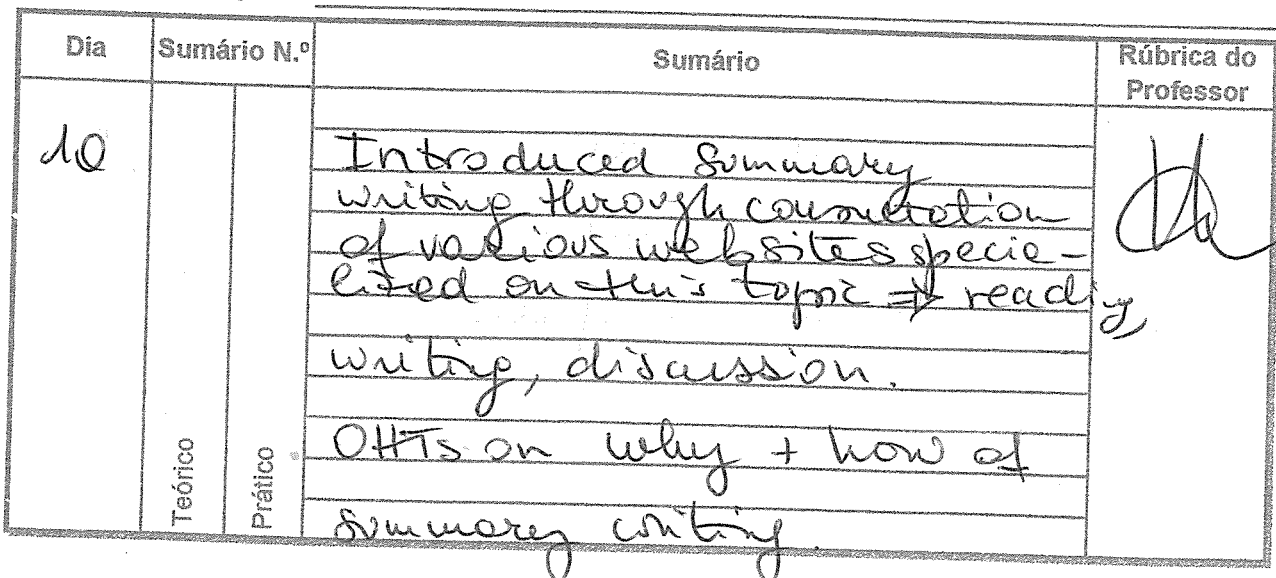 Dia Sumário N.º Sumário Rúbrica do
Professor
10
Introduced summary
writing through consultation
of various websites specia-
lized on this topic ⇒ reading,
writing, discussion.
OHTs on why + how of
summary writing.
Teórico
Prático